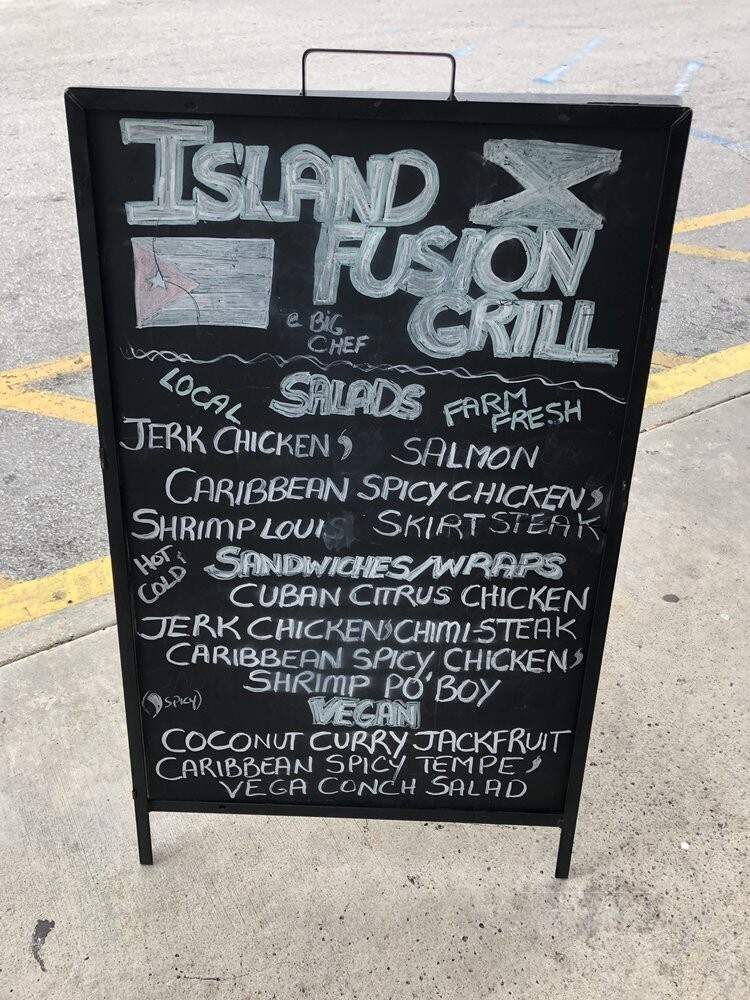 ISLAND
FUSION
GRILL
@ BIG
CHEF
LOCAL SALADS FARM FRESH
JERK CHICKEN SALMON
CARIBBEAN SPICY CHICKEN
SHRIMP LOUIS SKIRT STEAK
HOT COLD SANDWICHES/WRAPS
CUBAN CITRUS CHICKEN
JERK CHICKEN CHIMI-STEAK
CARIBBEAN SPICY CHICKEN
SHRIMP PO'BOY
( SPICY)
VEGAN
COCONUT CURRY JACKFRUIT
CARIBBEAN SPICY TEMPE
VEGA CONCH SALAD